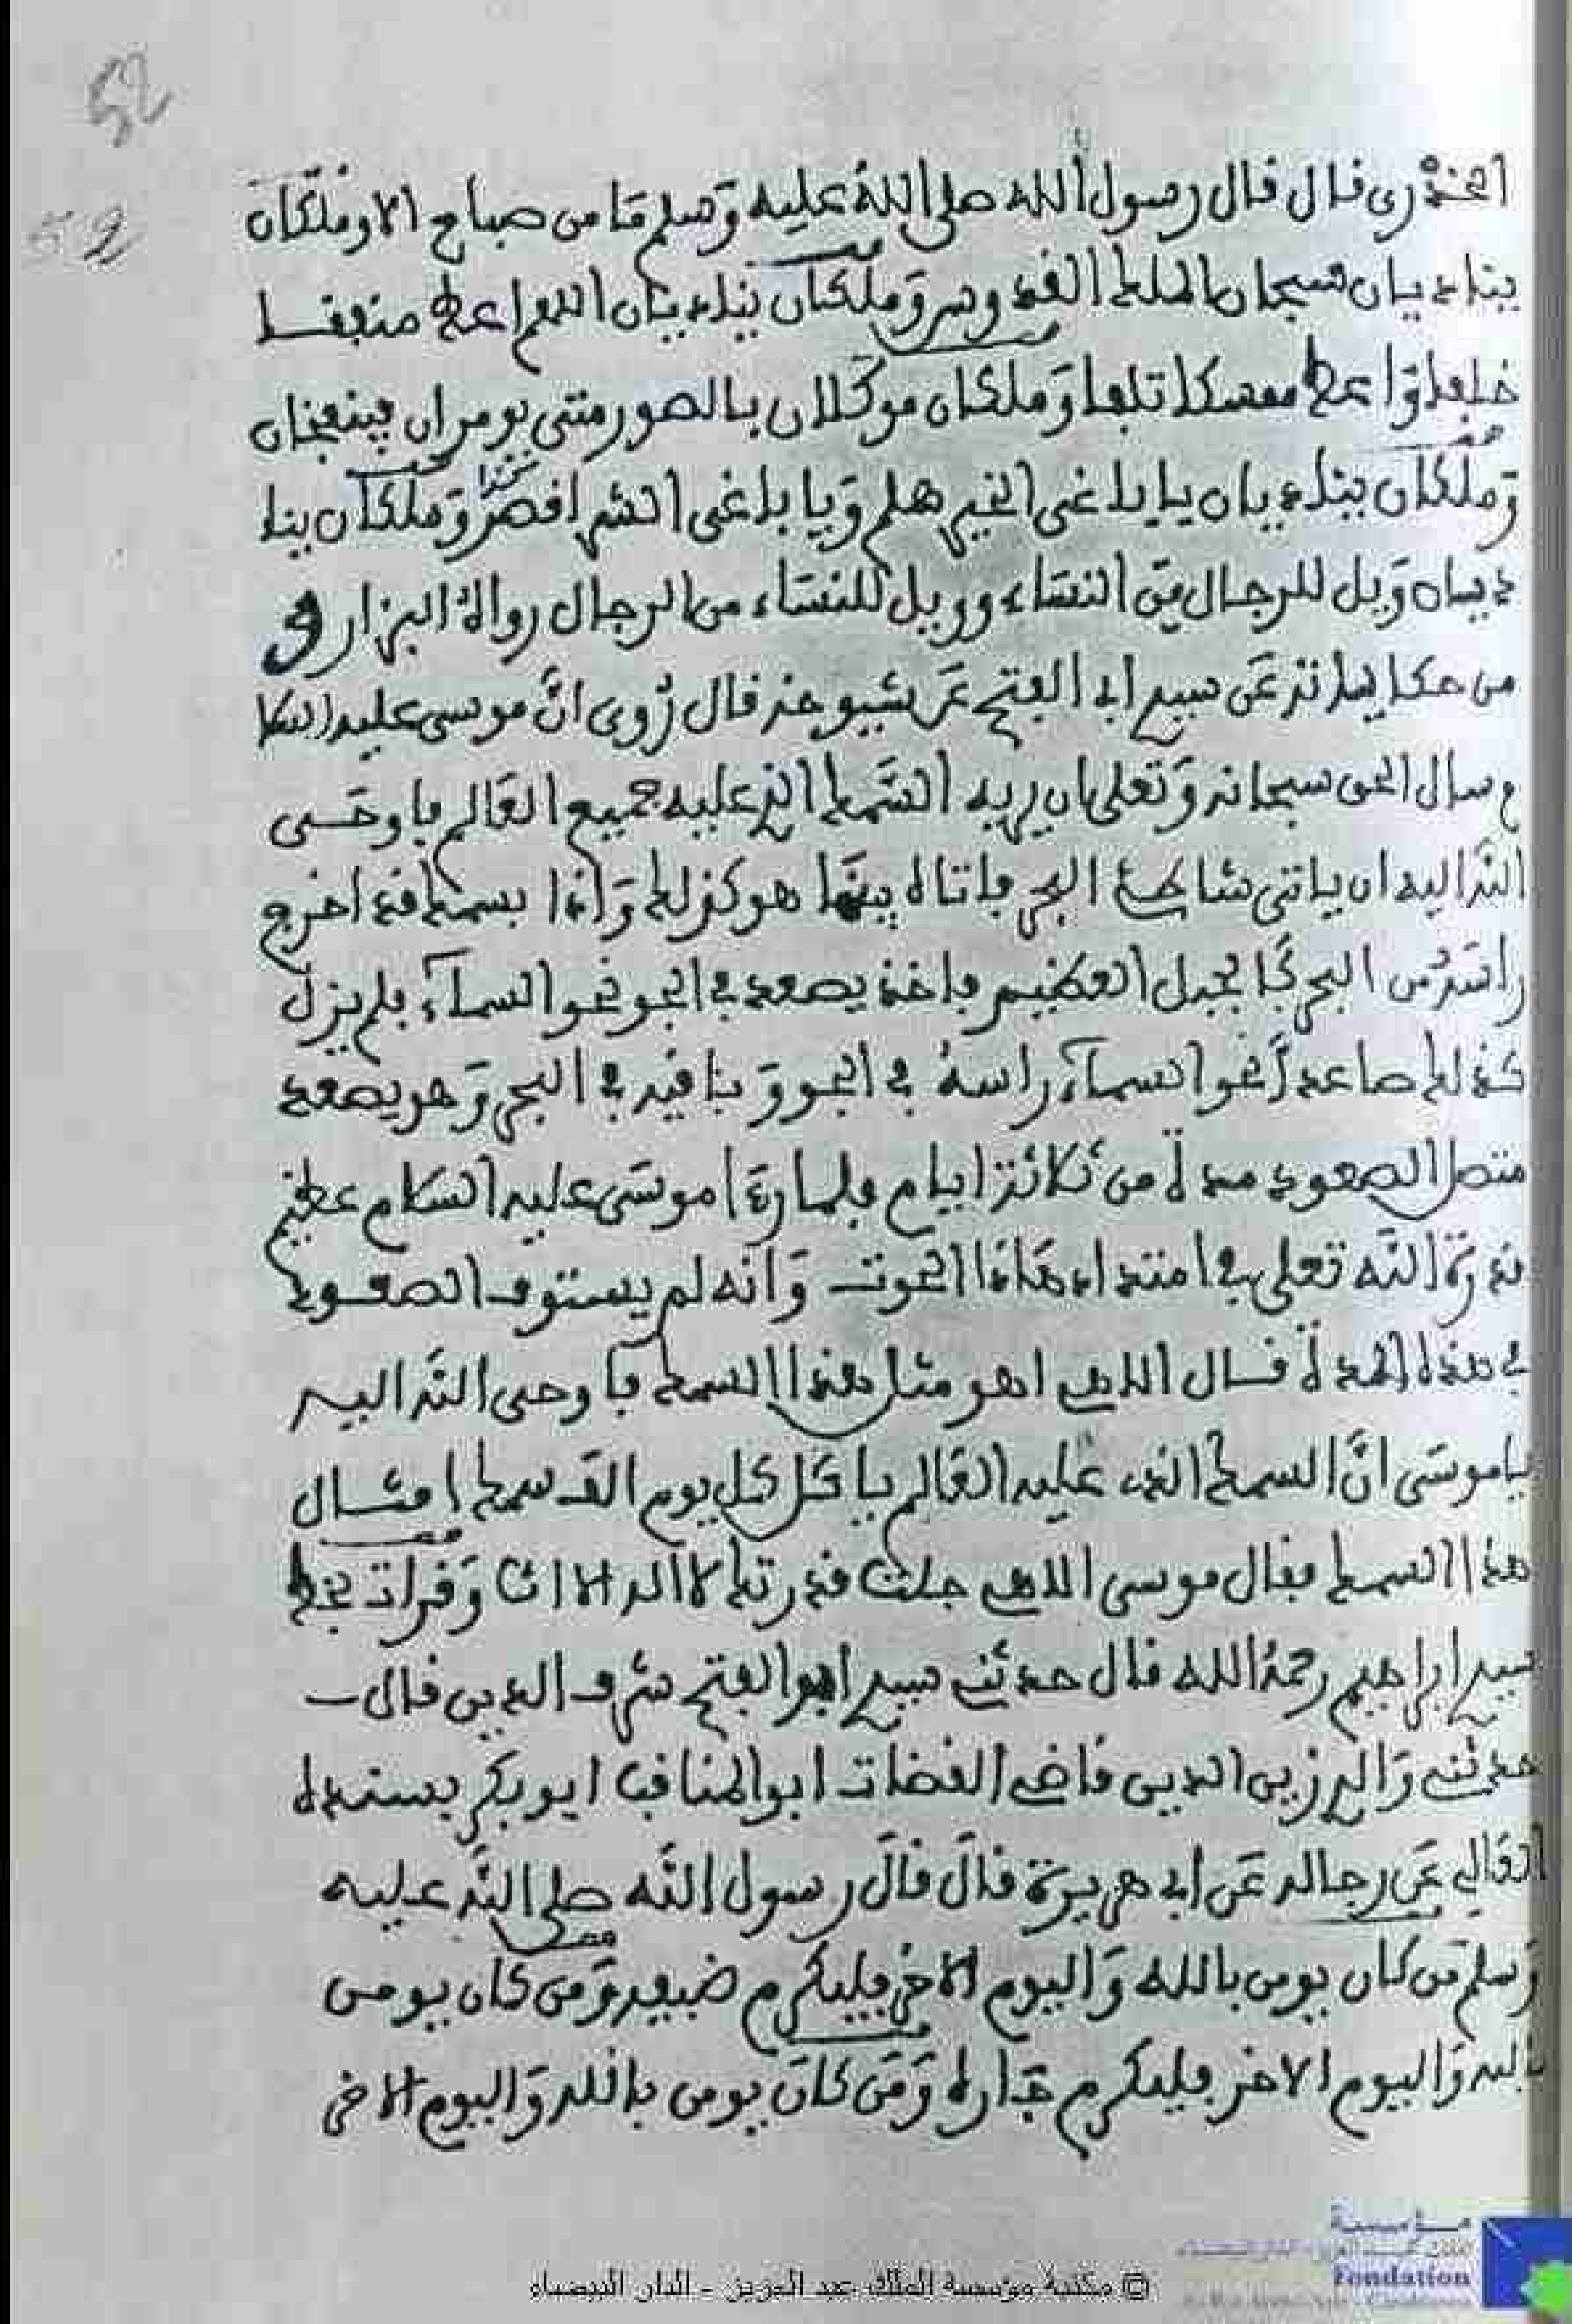 52
52
الخذري قال قال رسول الله صلى الله عليه وسلم ما من صباح الا وملكان
يناديان سبحان الملك القدوس وملكان يناديان اللهم اعط منفقا
خلفا واعط ممسكا تلفا وملكان موكلان بالصور متى يومران فينفخان
وملكان يناديان يا باغي الخير هلم ويا باغي الشر اقصر وملكان ينا
ديان ويل للرجال من النساء وويل للنساء من الرجال رواه البزار و
من حكاياته عن سيدي ابي الفتح عن شيوخه قال روي ان موسى عليه السلا
م سال الحق سبحانه وتعلى ان يريه السمك الذي عليه جميع العالم فاوحى
الله اليه ان ياتي شاطئ البحر فاتاه بينما هو كذلك واذا بسمك قد اخرج
راسه من البحر كالجبل العظيم فاخذ يصعد في الجو نحو السماء فلم يزل
كذلك صاعدا نحو السماء راسه في الجو وباقيه في البحر وهو يصعد
متصل الصعود مدة من ثلاثة ايام فلما رءا موسى عليه السلام عظيم
قدرة الله تعلى في امتداد هاذا الحوت وانه لم يستوف الصعود
في هذه المدة قال اللهي اهو مثل هذا السمك فاوحى الله اليه
يا موسى ان السمك الذي عليه العالم ياكل كل يوم الف سمك امثال
هذا السمك فقال موسى اللهي جلت قدرتك لا اله الا انت وقرات بخط
سيدي ابراهيم رحمه الله قال حدثني سيدي ابو الفتح شرف الدين قال
حدثني والدي زين الدين قاضي القضات ابو المناقب ابو بكر بسنده
العالي عن رجاله عن ابي هريرة قال قال رسول الله صلى الله عليه
وسلم من كان يومن بالله واليوم الاخر فليكرم ضيفه ومن كان يومن
بالله واليوم الاخر فليكرم جاره ومن كان يومن بالله واليوم الاخر
مؤسسة
Fondation
© مكتبة مؤسسة الملك عبد العزيز - الدار البيضاء